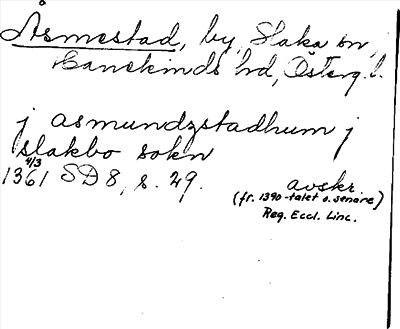 Åsmestad, by, Slaka sn,
Hanekinds hd, Österg. l.
j asmundzstadhum j
slakbo sokn
4/3
1361 SD 8, s. 29. avskr.
(fr. 1390-talet o. senare)
Reg. Eccl. Linc.